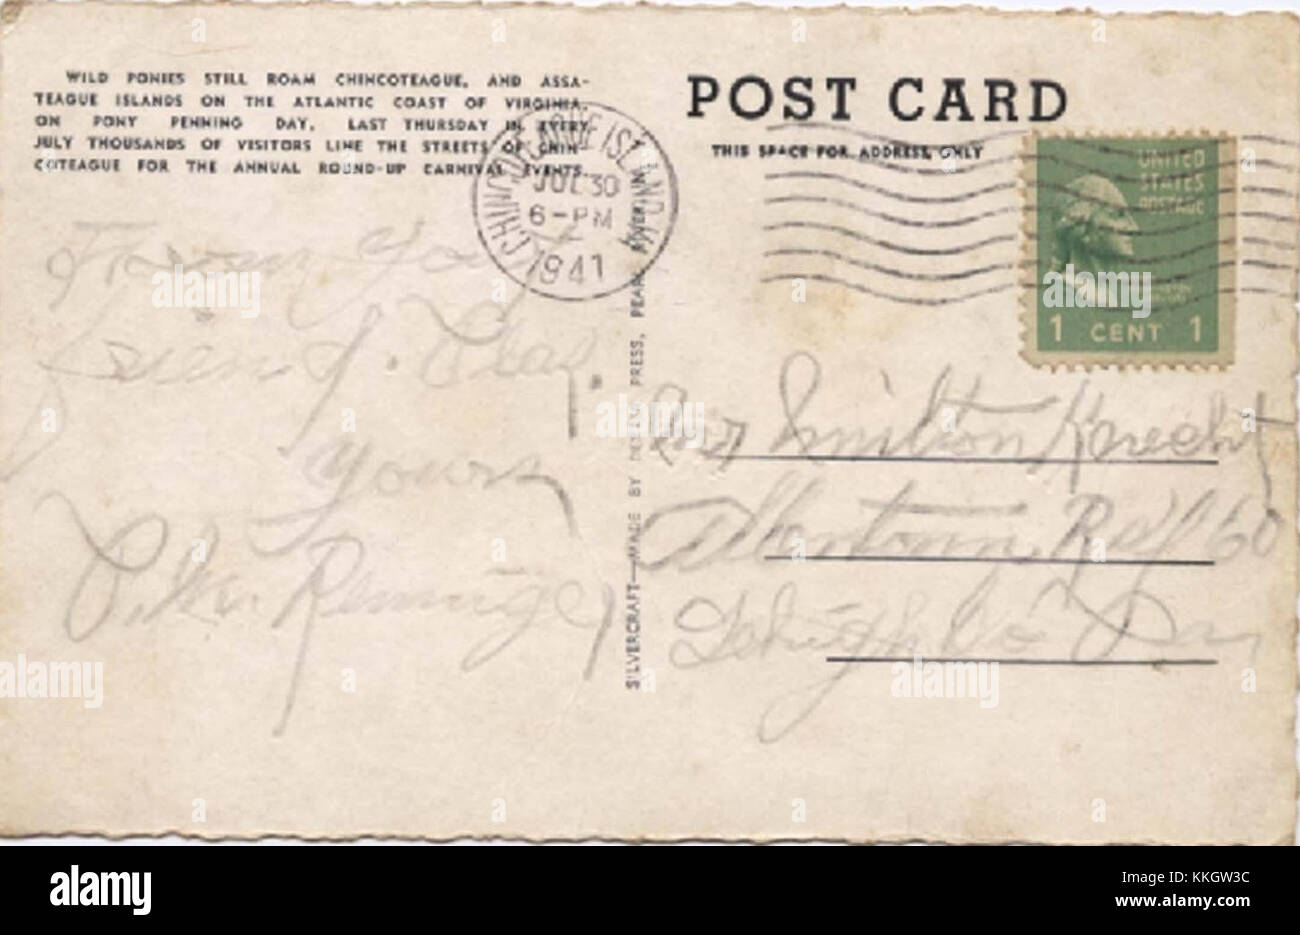 WILD PONIES STILL ROAM CHINCOTEAGUE, AND ASSA-
TEAGUE ISLANDS ON THE ATLANTIC COAST OF VIRGINIA.
ON PONY PENNING DAY, LAST THURSDAY IN EVERY
JULY THOUSANDS OF VISITORS LINE THE STREETS OF CHIN-
COTEAGUE FOR THE ANNUAL ROUND-UP CARNIVAL EVENTS.
CHINCOTEAGUE ISLAND, VA.
JUL 30
6-PM
1941
From You
Friend.
Yours
SILVERCRAFT—MADE BY PRESS, PEARL RIVER
POST CARD
THIS SPACE FOR ADDRESS ONLY
UNITED
STATES
POSTAGE
1 CENT 1
Mr Milton Knecht
Allentown, R
Lehigh Co
alamy
alamy
alamy
KKGW3C
www.alamy.com